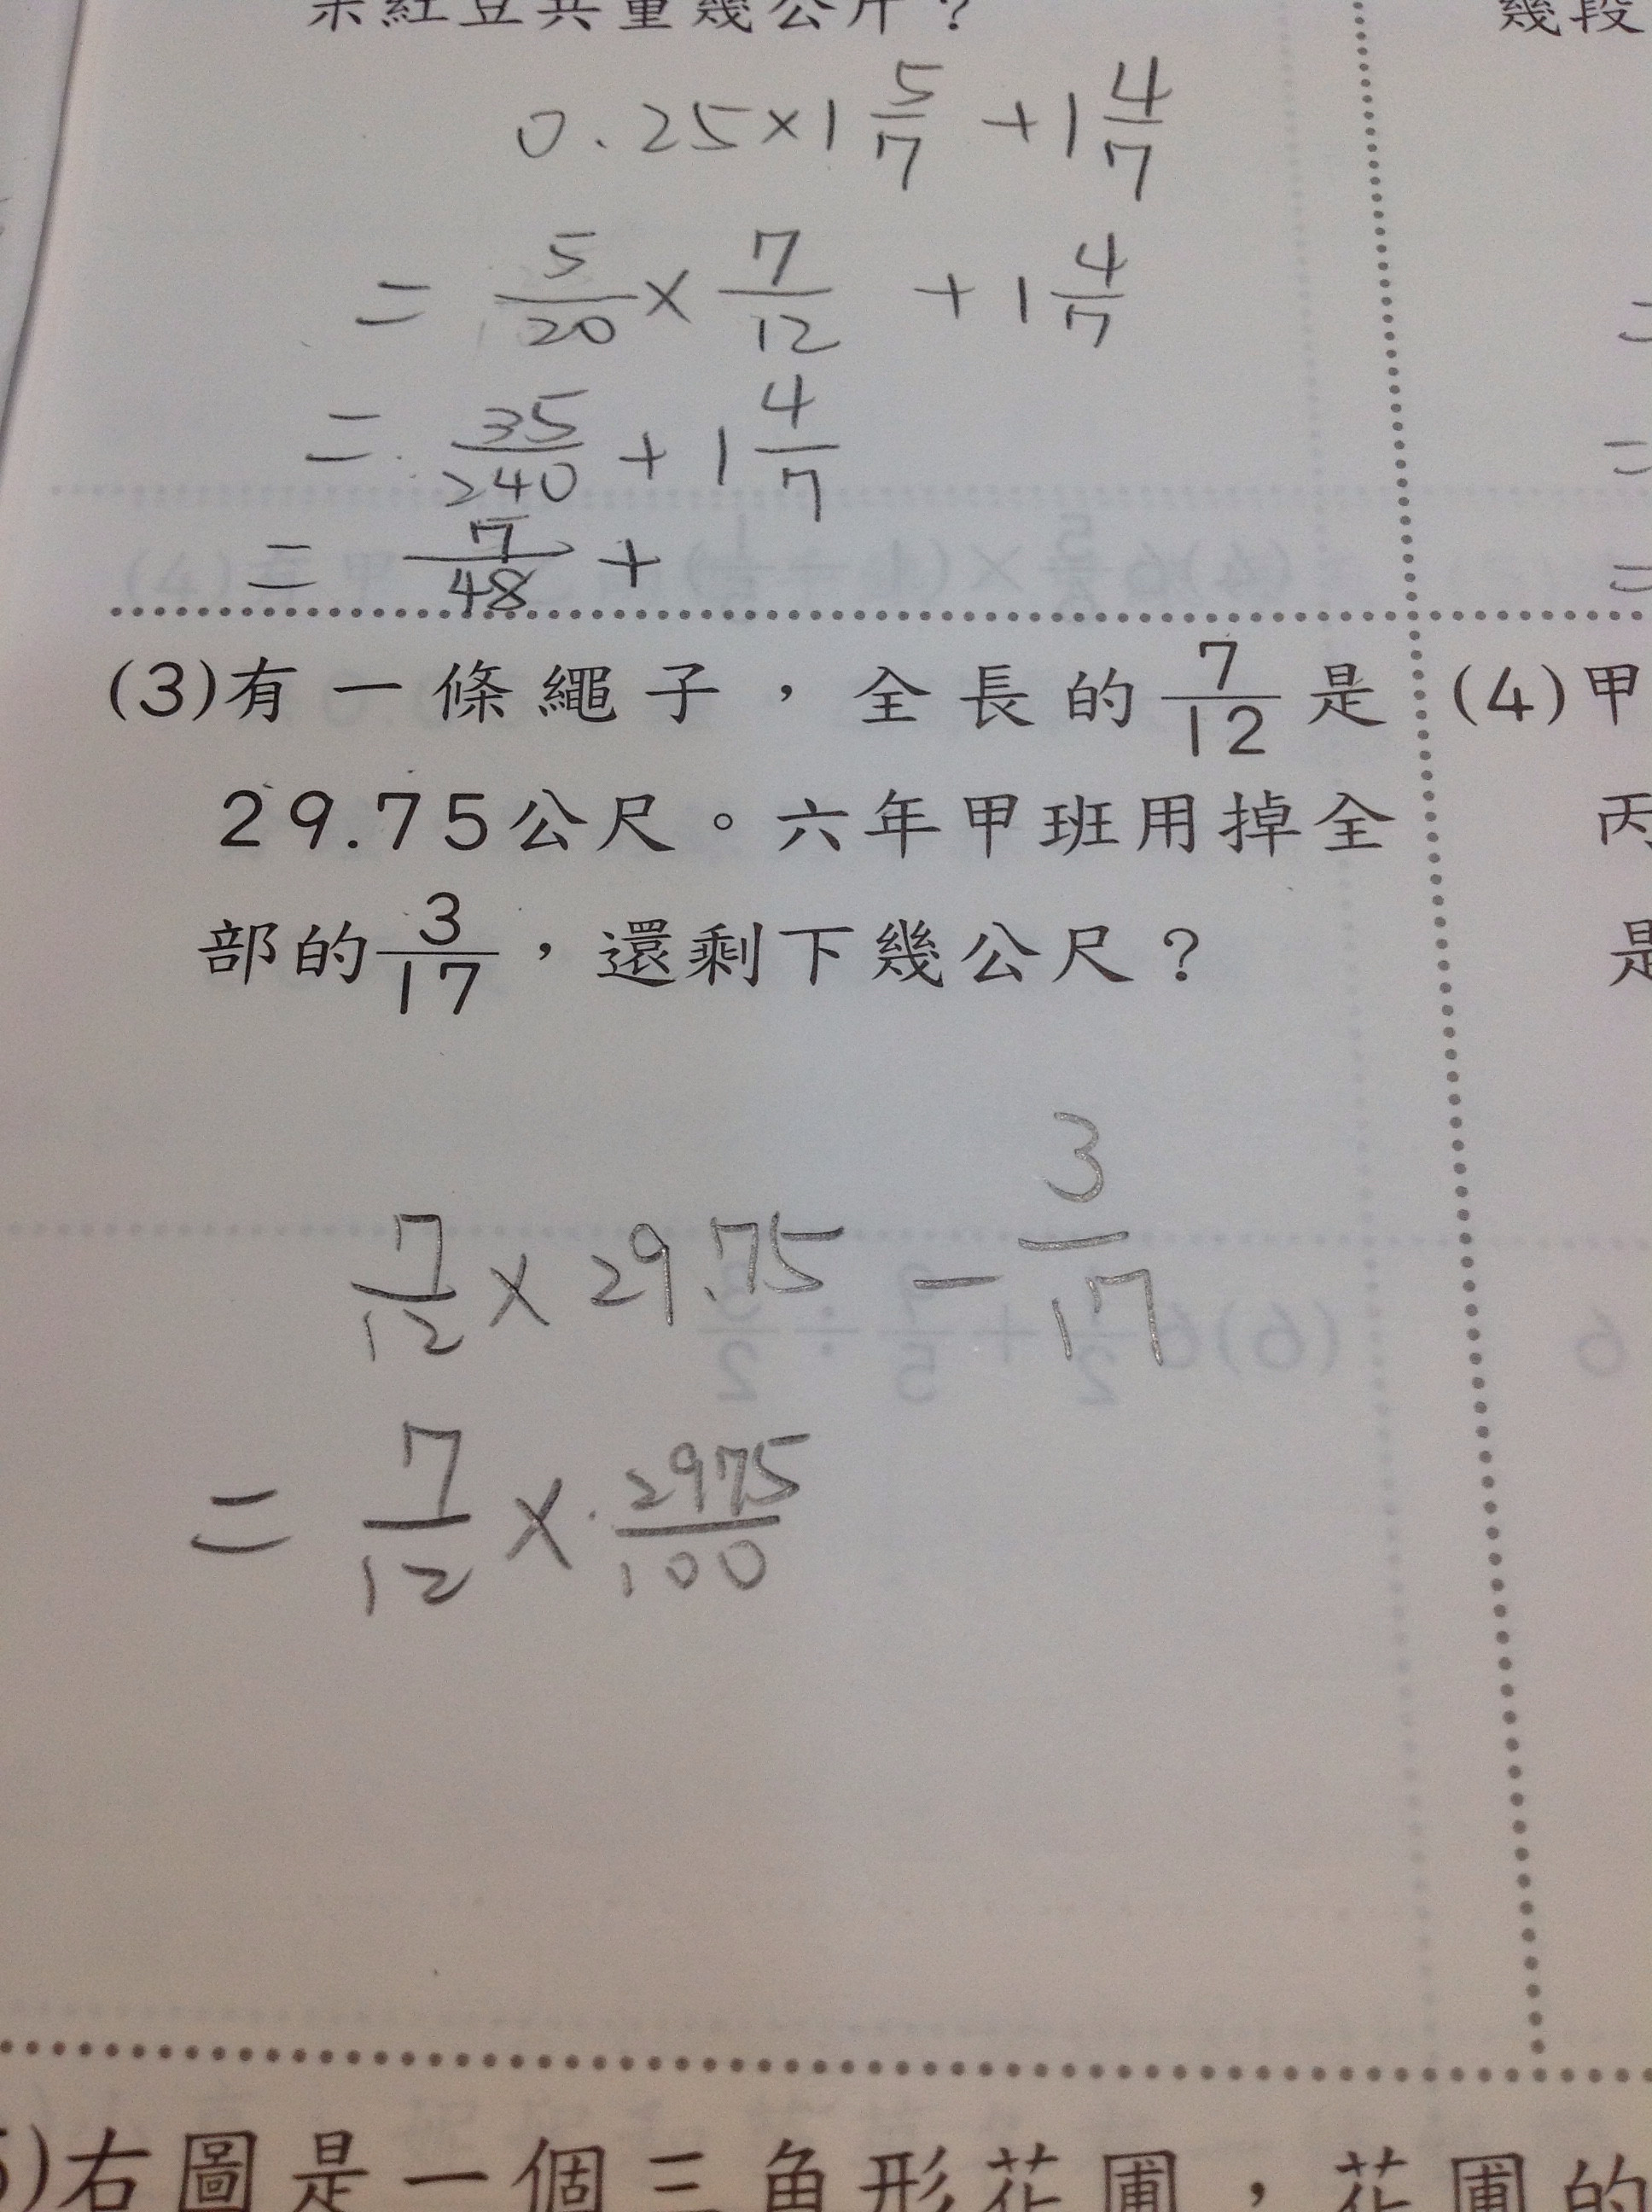 紅豆共重幾公斤？
幾段
0.25×1 5/7 +1 4/7
= 5/20 × 7/12 +1 4/7
= 35/240 +1 4/7
= 7/48 +
(3)有一條繩子，全長的7/12是
29.75公尺。六年甲班用掉全
部的3/17，還剩下幾公尺？
7/12 × 29.75 − 3/17
= 7/12 × 2975/100
(4)甲
丙
是
)右圖是一個三角形花圃，花圃的